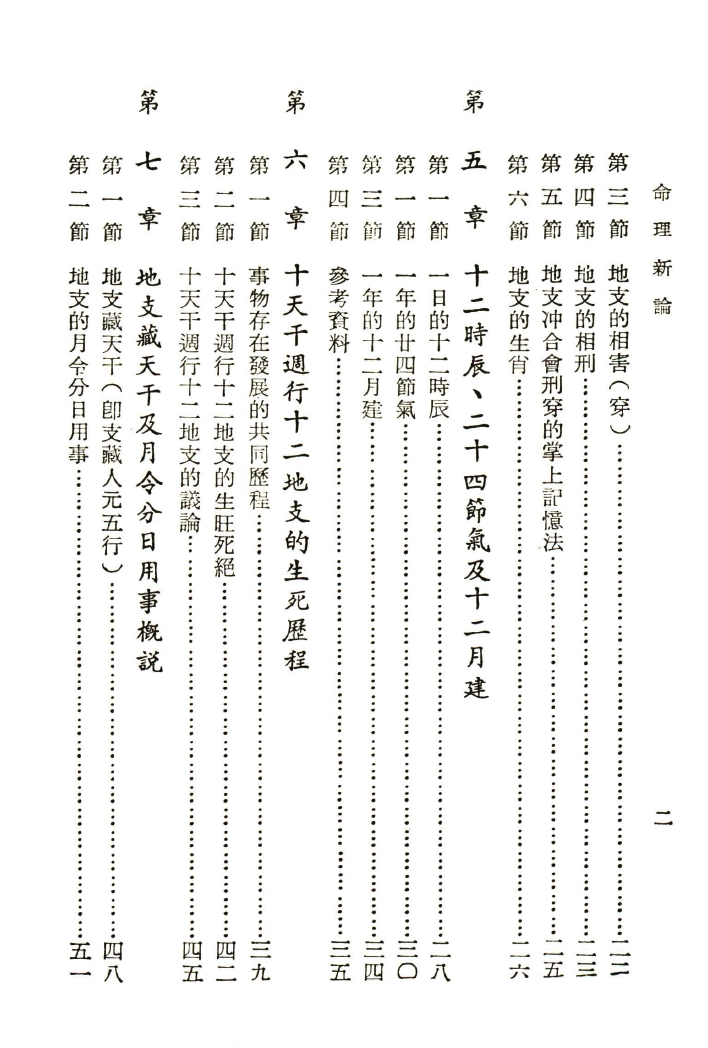 命理新論
二
第三節 地支的相害（穿）……二二
第四節 地支的相刑……二三
第五節 地支冲合會刑穿的掌上記憶法……二五
第六節 地支的生肖……二六
第五章 十二時辰、二十四節氣及十二月建
第一節 一日的十二時辰……二八
第一節 一年的廿四節氣……三〇
第三節 一年的十二月建……三四
第四節 參考資料……三五
第六章 十天干週行十二地支的生死歷程
第一節 事物存在發展的共同歷程……三九
第二節 十天干週行十二地支的生旺死絕……四二
第三節 十天干週行十二地支的議論……四五
第七章 地支藏天干及月令分日用事概説
第一節 地支藏天干（卽支藏人元五行）……四八
第二節 地支的月令分日用事……五一